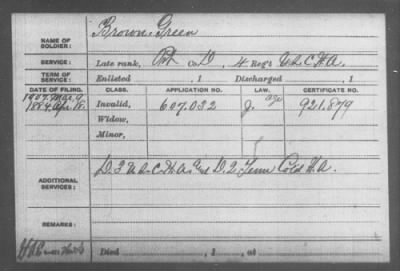 NAME OF SOLDIER: Brown, Green
SERVICE: Late rank, Pvt Co. D, 4 Reg't U.S.C.H.A.
TERM OF SERVICE: Enlisted , 1 Discharged , 1
DATE OF FILING. CLASS. APPLICATION NO. LAW. CERTIFICATE NO.
1907, Mar. 9
1884, Apr. 18. Invalid, 607.032 J. age 921.879
Widow,
Minor,
ADDITIONAL SERVICES: D. 3 U.S.C.H.A. and D. 2 Tenn Cold H.A.
REMARKS:
Died , 1 , at